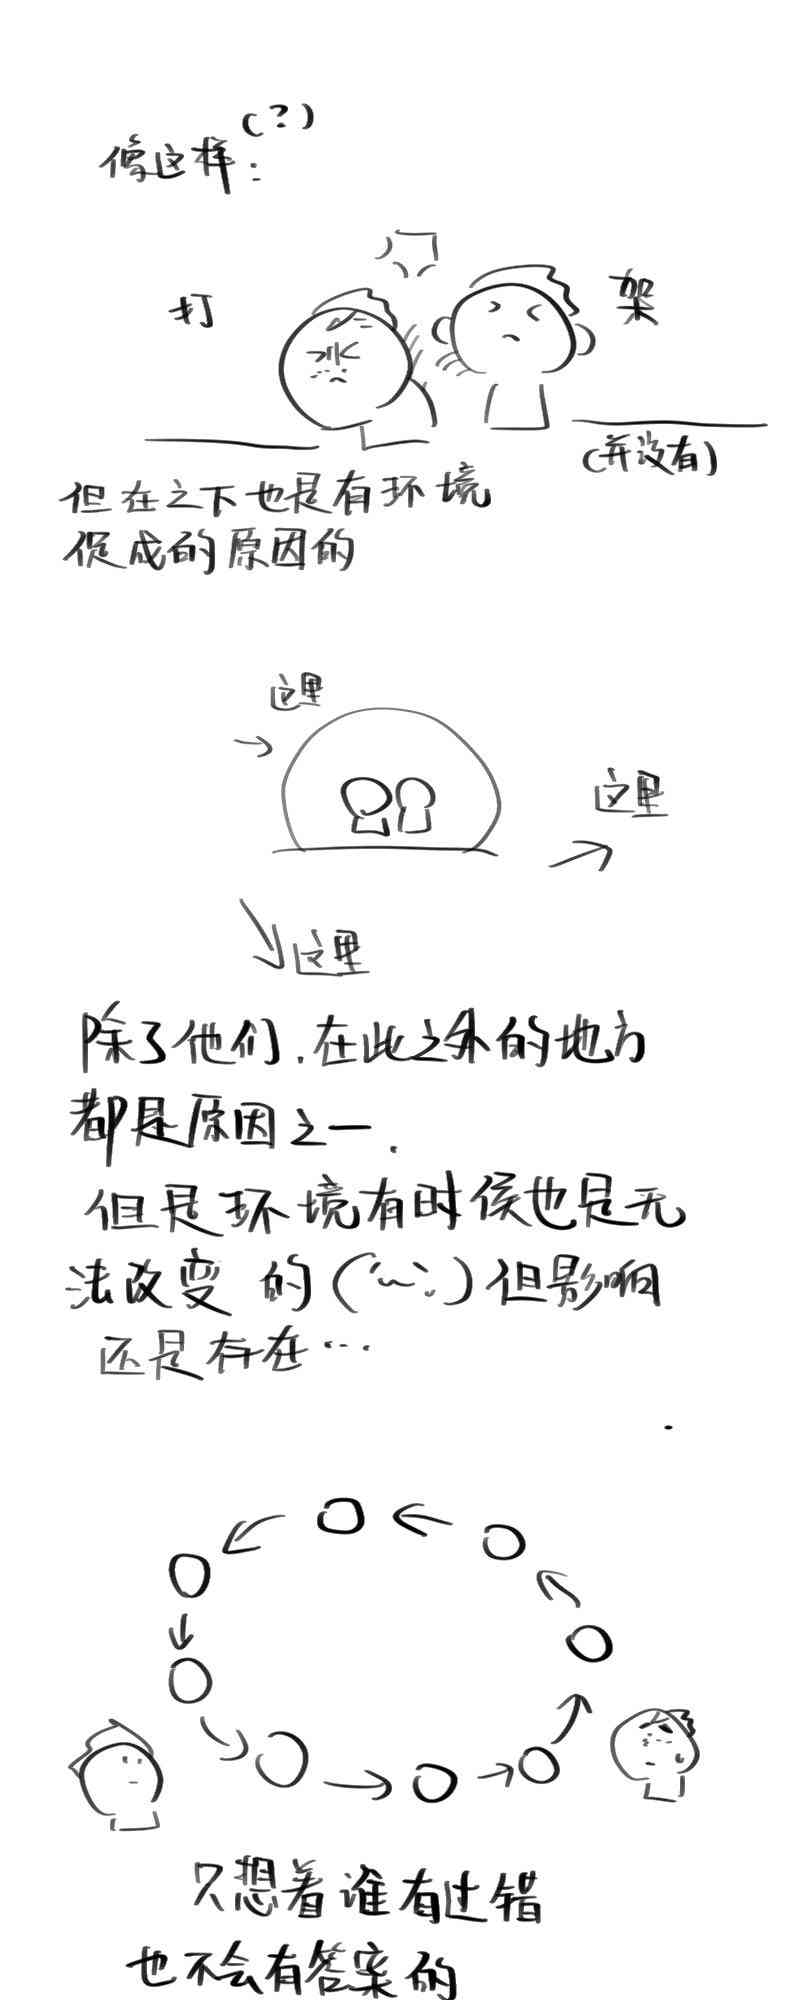 (?)
像这样：
打
架
(并没有)
但在之下也是有环境
促成的原因的
这里
这里
这里
除了他们.在此之外的地方
都是原因之一.
但是环境有时候也是无
法改变 的 ( )但影响
还是存在…
只想着谁有过错
也不会有答案的